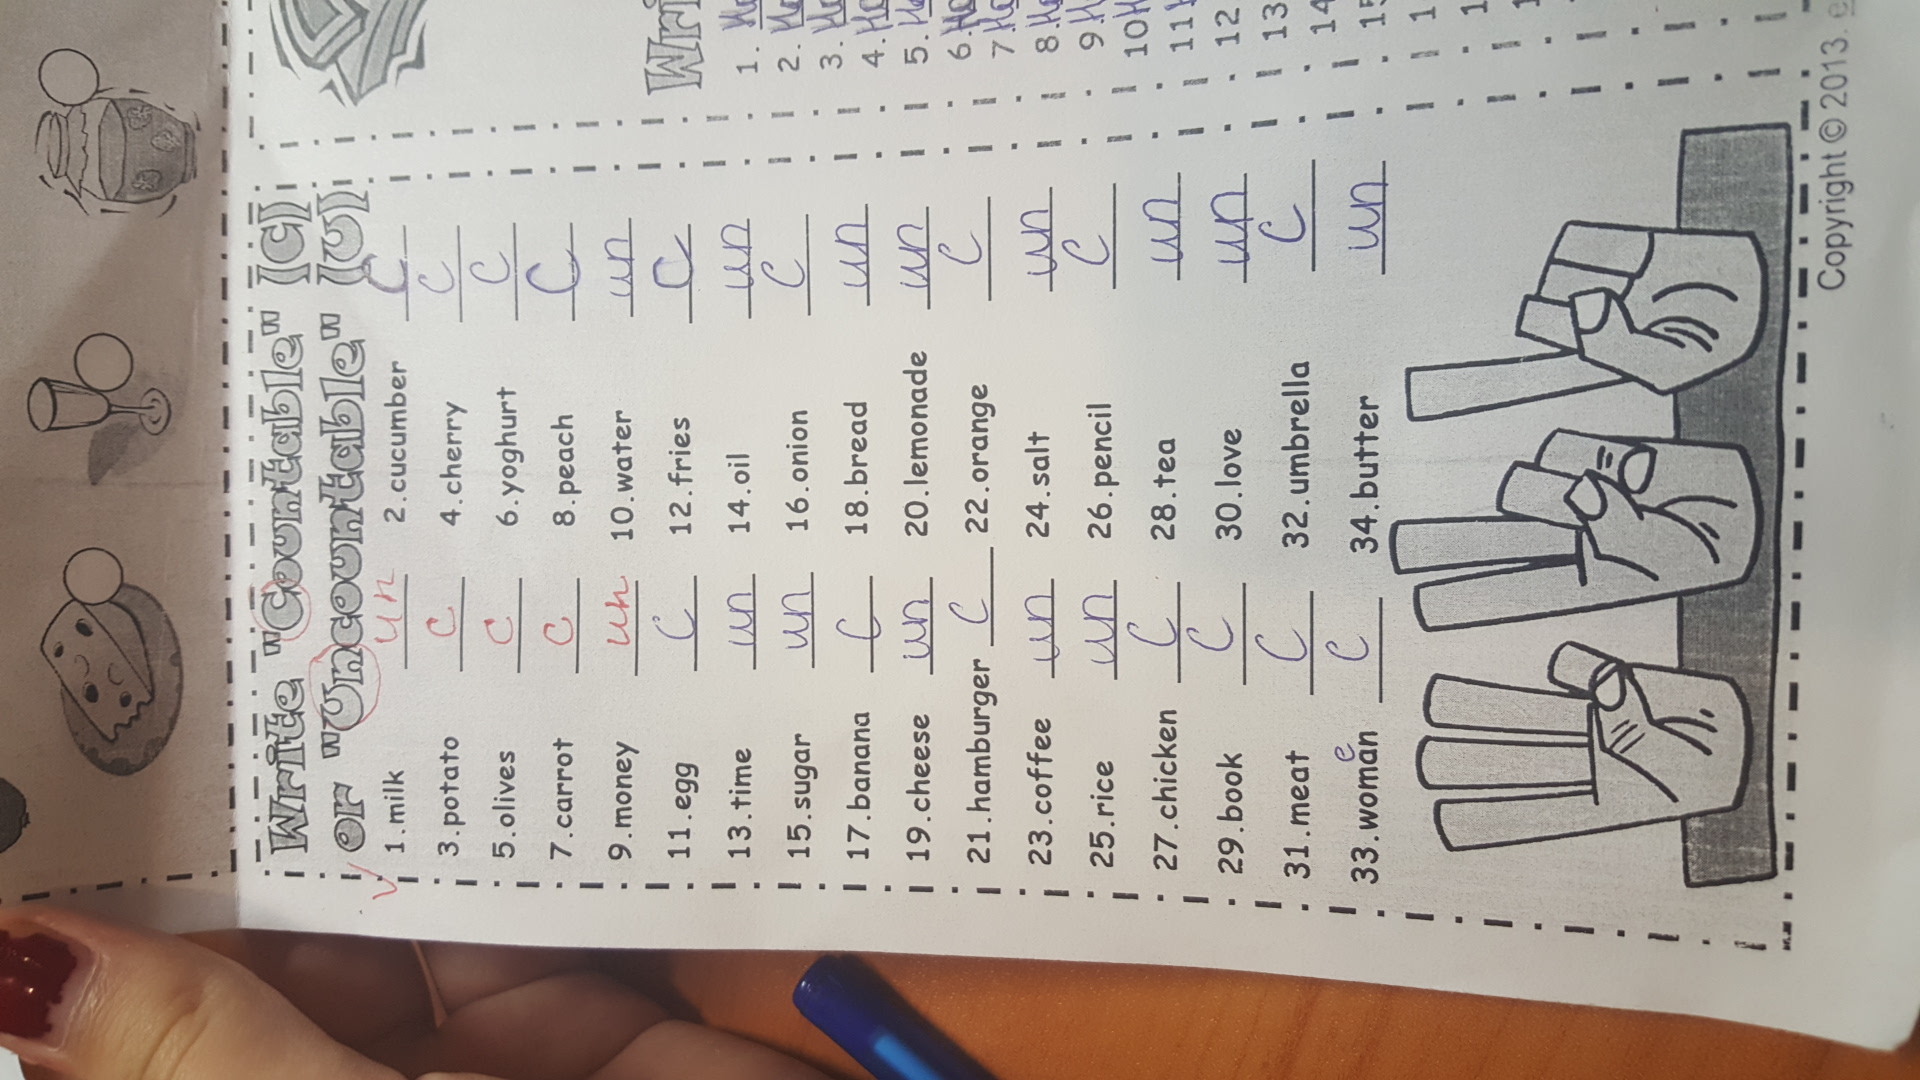 Write "Countable" (C)
or "Uncountable" (U)
1.milk un 2.cucumber C
3.potato C 4.cherry C
5.olives C 6.yoghurt C
7.carrot C 8.peach C
9.money un 10.water un
11.egg C 12.fries C
13.time un 14.oil un
15.sugar un 16.onion C
17.banana C 18.bread un
19.cheese un 20.lemonade un
21.hamburger C 22.orange C
23.coffee un 24.salt un
25.rice un 26.pencil C
27.chicken C 28.tea un
29.book C 30.love un
31.meat C 32.umbrella C
33.woman e C 34.butter un
Wri
1.
2.
3.
4.
5.
6.
7.
8.
9
10
11
12
13
14
Copyright © 2013. e